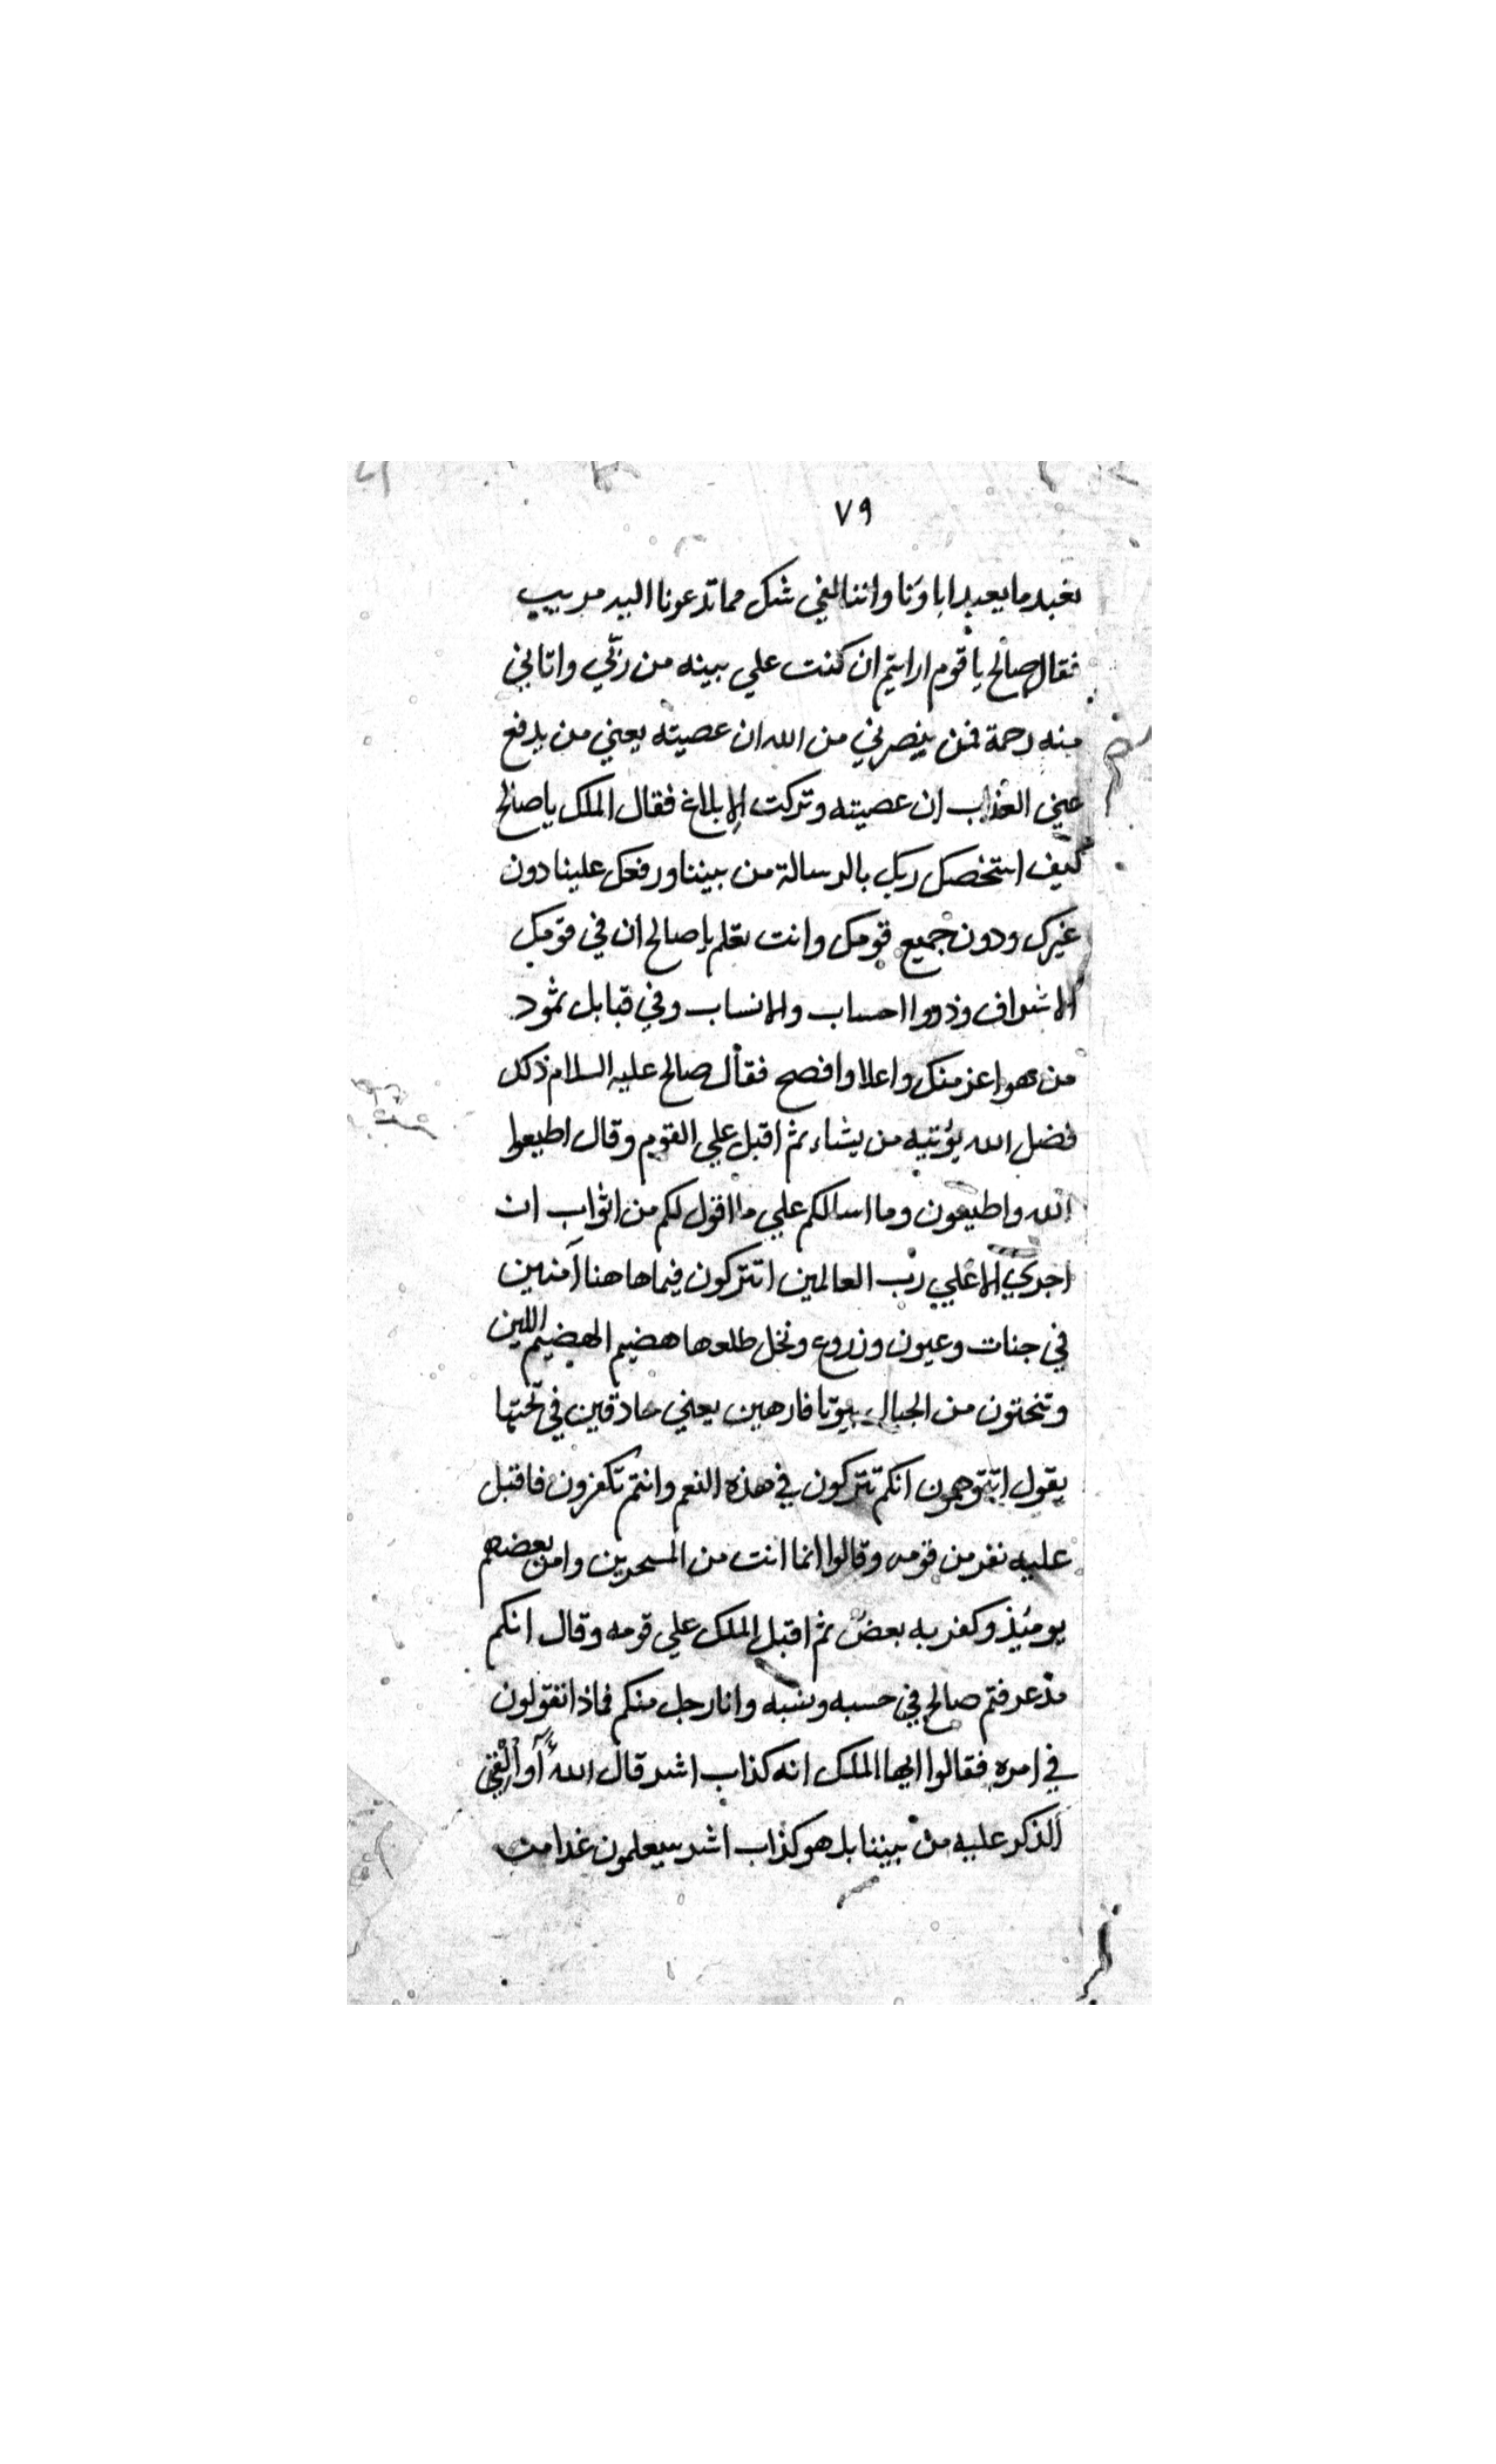 ٧٩
نعبد ما يعبد اباؤنا واننا لفي شك مما تدعونا اليه مريب
فقال صالح يا قوم ارايتم ان كنت علي بينه من ربّي واتاني
منه رحمة فمن ينصرني من الله ان عصيته يعني من يدفع
عني العذاب ان عصيته وتركت الابلاغ فقال الملك يا صالح
كيف استخصك ربك بالرسالة من بيننا ورفعك علينا دون
غيرك ودون جميع قومك وانت تعلم يا صالح ان في قومك
الاشراف وذووا احساب والانساب وفي قبايل ثمود
من هو اعز منك واعلا وافصح فقال صالح عليه السلام ذلك
فضل الله يؤتيه من يشاء ثم اقبل علي القوم وقال اطيعوا
الله واطيعون وما اسالكم علي ما اقول لكم من اثواب ان
اجري الا علي رب العالمين اتتركون فيما هاهنا آمنين
في جنات وعيون وزروع ونخل طلعها هضيم الهضيم اللين
وتنحتون من الجبال بيوتا فارهين يعني حاذقين في نحتها
يقول اتتوهمون انكم تتركون في هذه النعم وانتم تكفرون فاقبل
عليه نفر من قومه وقالوا انما انت من المسحرين وامن بعضهم
يومئذ وكفر به بعض ثم اقبل الملك علي قومه وقال انكم
قد عرفتم صالح في حسبه ونسبه وانا رجل منكم فماذا تقولون
في امره فقالوا ايها الملك انه كذاب اشر قال الله أو ألقي
الذكر عليه من بيننا بل هو كذاب اشر سيعلمون غدا من